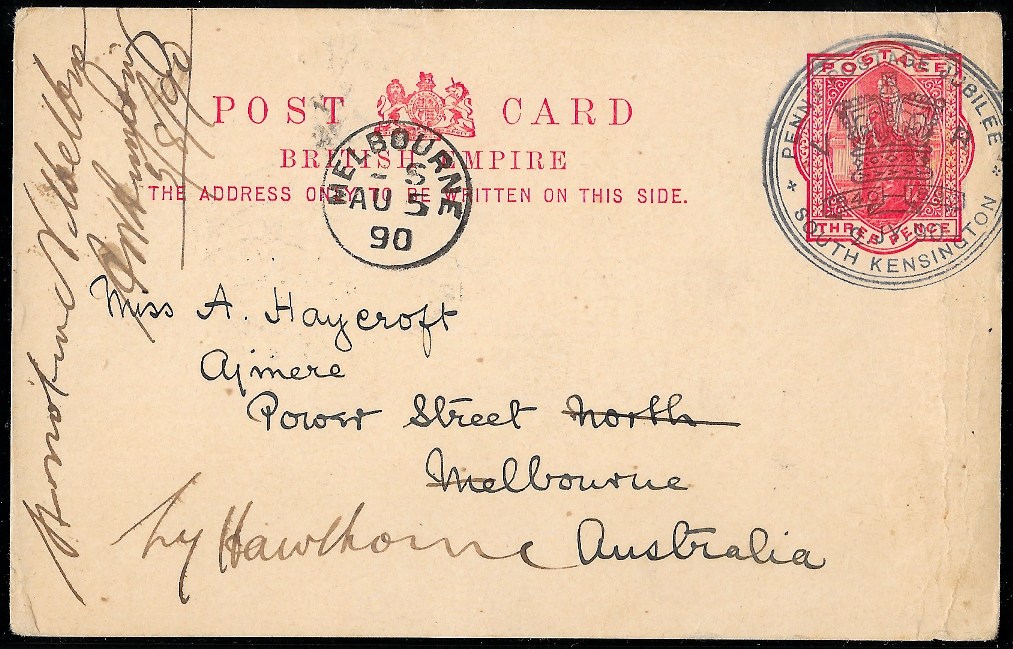 POST CARD
BRITISH EMPIRE
THE ADDRESS ONLY TO BE WRITTEN ON THIS SIDE.
POSTAGE
THREE PENCE
PENNY POSTAGE JUBILEE
SOUTH KENSINGTON
JY 90
MELBOURNE
S
AU 5
90
Miss A. Haycroft
Ajmere
Power Street North
Melbourne
Try Hawthorne Australia
5/8/90